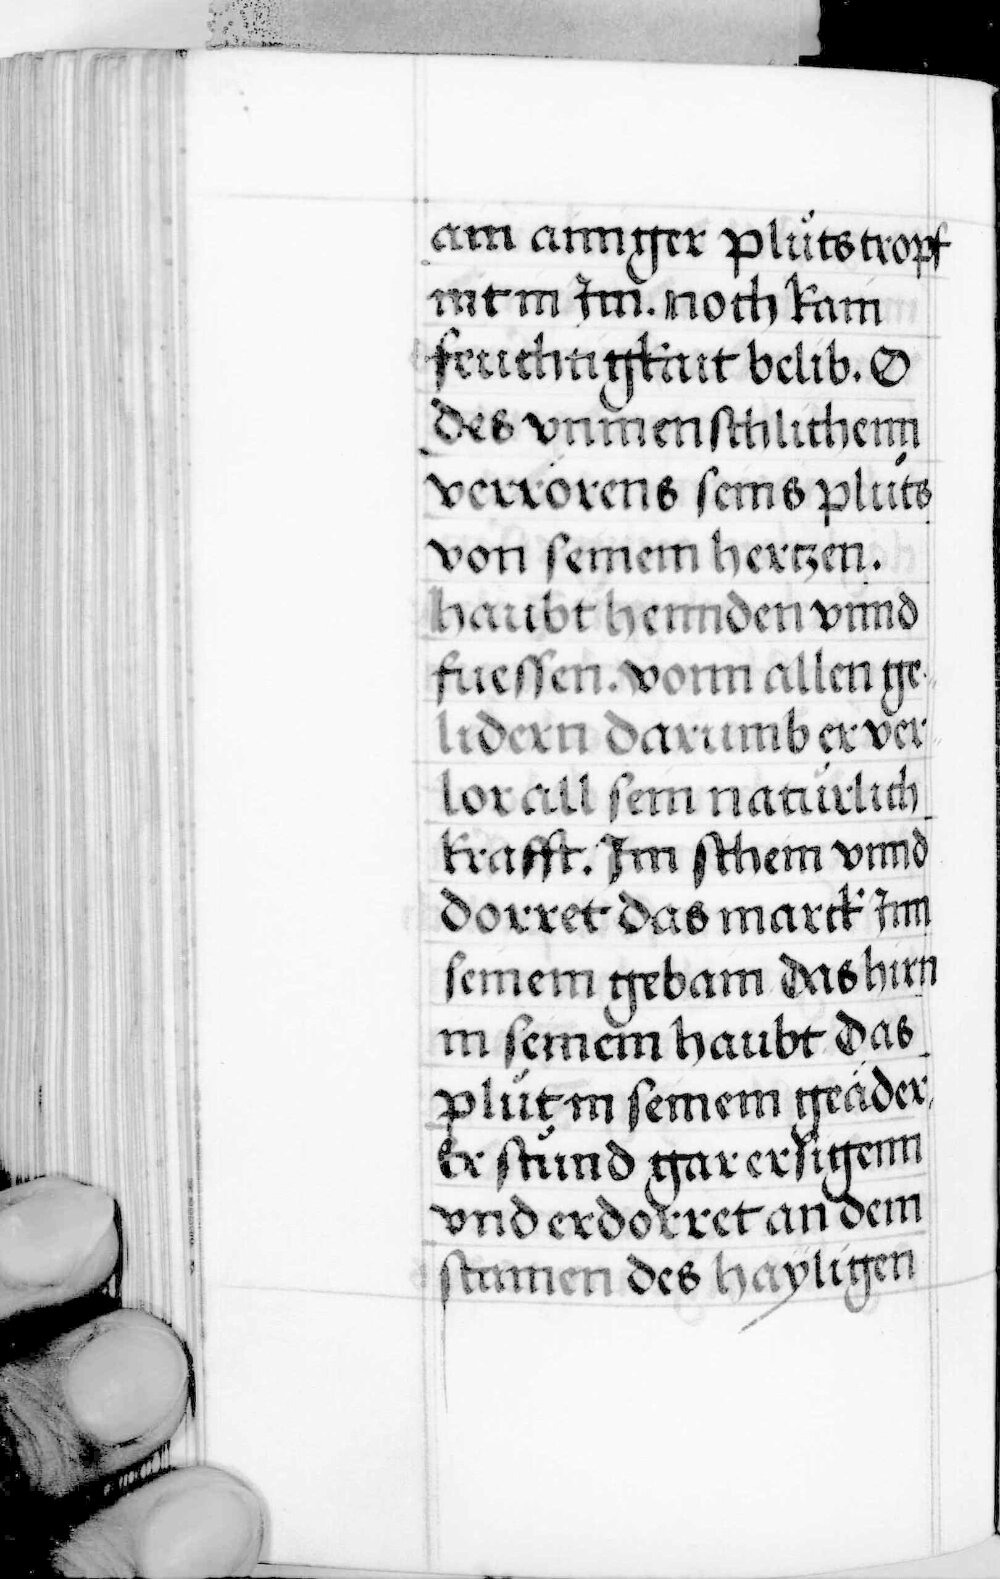 ain ainiger plůtstropf
nit in Jm. noch kain
feuchtigkait belib. O
des vnmenschlichenn
verrörens seins plúts
von seinem hertzen.
haubt henndenn vnnd
fuessen. vonn allen ge-
lidern darumb er ver
lor all sein natürlich
krafft. Jm schein vnnd
dorret das marck Jnn
seinem gebain das hirn
in seinem haubt das
plůt in seinem geäder,
Er stůnd gar ersigenn
vnd erdorret an dem
stamen des hayligen